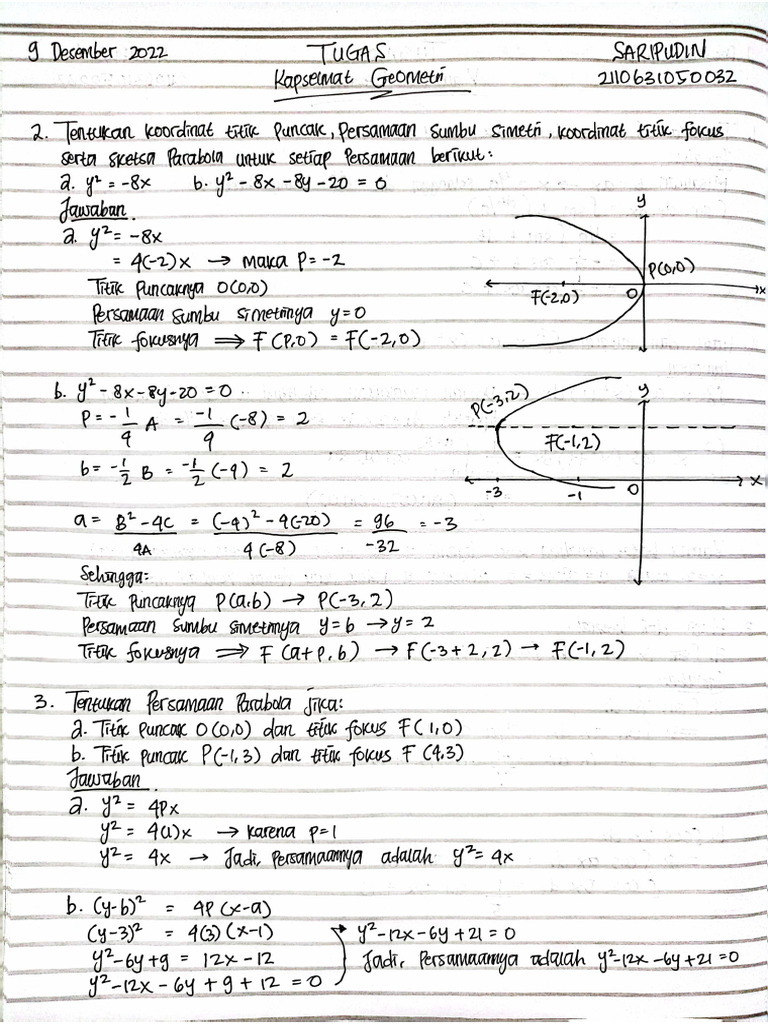 9 Desember 2022 TUGAS SARIPUDIN
Kapselmat Geometri 2110631050032
2. Tentukan koordinat titik Puncak, Persamaan sumbu simetri, koordinat titik fokus
serta sketsa Parabola untuk setiap Persamaan berikut:
a. y² = -8x b. y² - 8x - 8y - 20 = 0
Jawaban
a. y² = -8x
= 4(-2)x → maka P = -2
Titik Puncaknya O(0,0)
Persamaan sumbu simetrinya y=0
Titik fokusnya ⟹ F(P,0) = F(-2,0)
y
P(0,0)
F(-2,0) O x
b. y² - 8x - 8y - 20 = 0
P = -1/4 A = -1/4 (-8) = 2
b = -1/2 B = -1/2 (-4) = 2
a = B² - 4C / 4A = (-4)² - 4(-20) / 4(-8) = 96 / -32 = -3
y
P(-3,2)
F(-1,2)
-3 -1 O x
Sehingga:
Titik Puncaknya P(a,b) → P(-3,2)
Persamaan sumbu simetrinya y=b → y=2
Titik fokusnya ⟹ F(a+P,b) → F(-3+2,2) → F(-1,2)
3. Tentukan Persamaan Parabola jika:
a. Titik Puncak O(0,0) dan titik fokus F(1,0)
b. Titik puncak P(-1,3) dan titik fokus F(4,3)
Jawaban
a. y² = 4Px
y² = 4(1)x → karena P=1
y² = 4x → Jadi, Persamaannya adalah y² = 4x
b. (y-b)² = 4P(x-a)
(y-3)² = 4(3)(x-1)
y² - 6y + 9 = 12x - 12
y² - 12x - 6y + 9 + 12 = 0
y² - 12x - 6y + 21 = 0
Jadi, Persamaannya adalah y² - 12x - 6y + 21 = 0